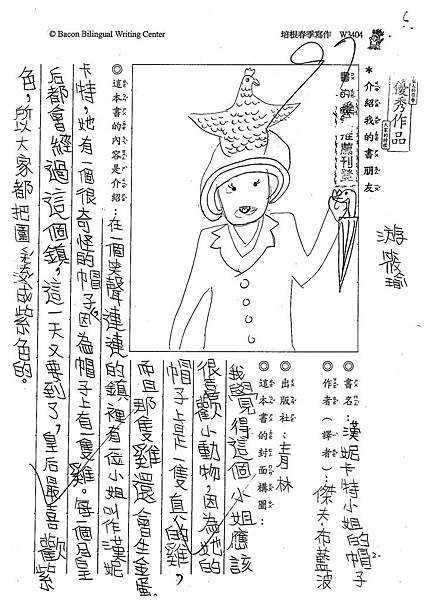 © Bacon Bilingual Writing Center
培根春季寫作 W3404
優秀作品
*介紹我的書朋友
推薦刊登
游筱瑜
◎書名：漢妮卡特小姐的帽子
◎作者（譯者）：傑夫·布藍波
◎出版社：青林
◎這本書的封面構圖：
我覺得這個小姐應該
很喜歡小動物，因為她的
帽子上是一隻真的雞，
而且那隻雞還會生金蛋。
◎這本書的內容是介紹：在一個笑聲連連的鎮裡有一位小姐叫作漢妮
卡特，她有一個很奇怪的帽子，因為帽子上有一隻雞。每一個月皇
后都會經過這個鎮，這一天又要到了，皇后最喜歡紫
色，所以大家都把圍漆成紫色的。